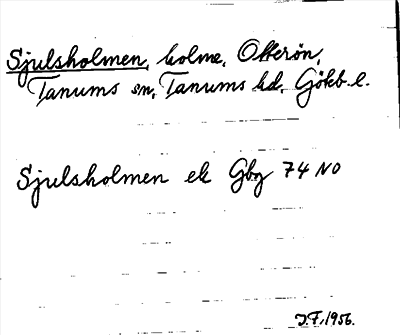 Sjulsholmen, holme, Otterön,
Tanums sn, Tanums hd, Göteb. l.
Sjulsholmen ek Gbg 74 NO
J.F. 1956.